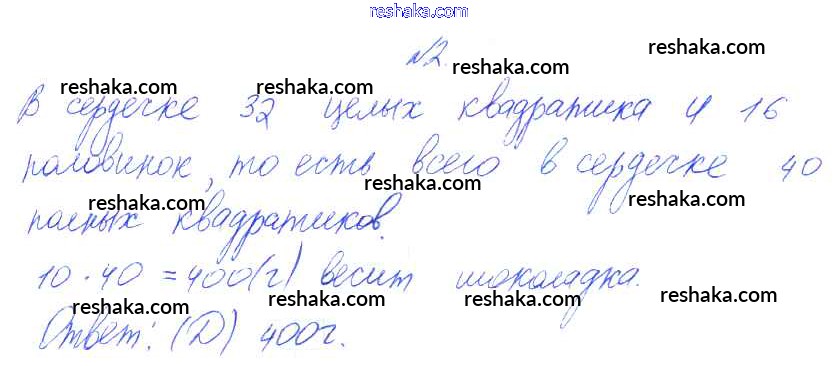 reshaka.com
№2. reshaka.com
reshaka.com reshaka.com reshaka.com
В сердечке 32 целых квадратика и 16
половинок, то есть всего в сердечке 40
reshaka.com reshaka.com
reshaka.com reshaka.com reshaka.com
полных квадратиков.
10 · 40 = 400 (г) весит шоколадка.
reshaka.com reshaka.com reshaka.com reshaka.com
Ответ: (D) 400г.